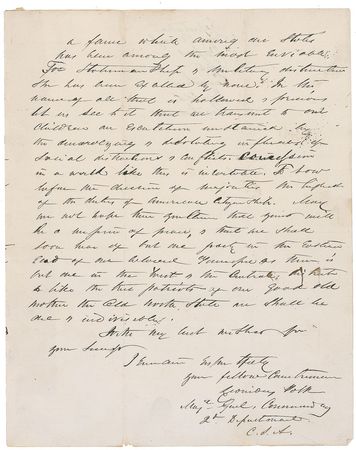 a fame which among our States
has been among the most enviable.
For Statesmanship & Military distinction
She has been excelled by none. In the
name of all that is hallowed & precious
let us see to it that we transmit to our
children an escutcheon unstained by
the demoralizing & desolating influences of
social distractions & conflicts. Concession
in a world like this is inevitable. To bow
before the decision of majorities the highest
of the duties of American Citizenship. May
we not hope then gentlemen that yours will
be a mission of peace, & that we shall
soon hear of but one party in the Eastern
end of our beloved Tennessee as there is
but one in the West & the Central, & that
like the true patriots of our good old
mother the Old North State we shall be
one & indivisible.
With my best wishes for
your
I remain respectfully
your fellow Countryman
Leonidas Polk
Maj. Genl. Commanding
2d Department
C.S.A.